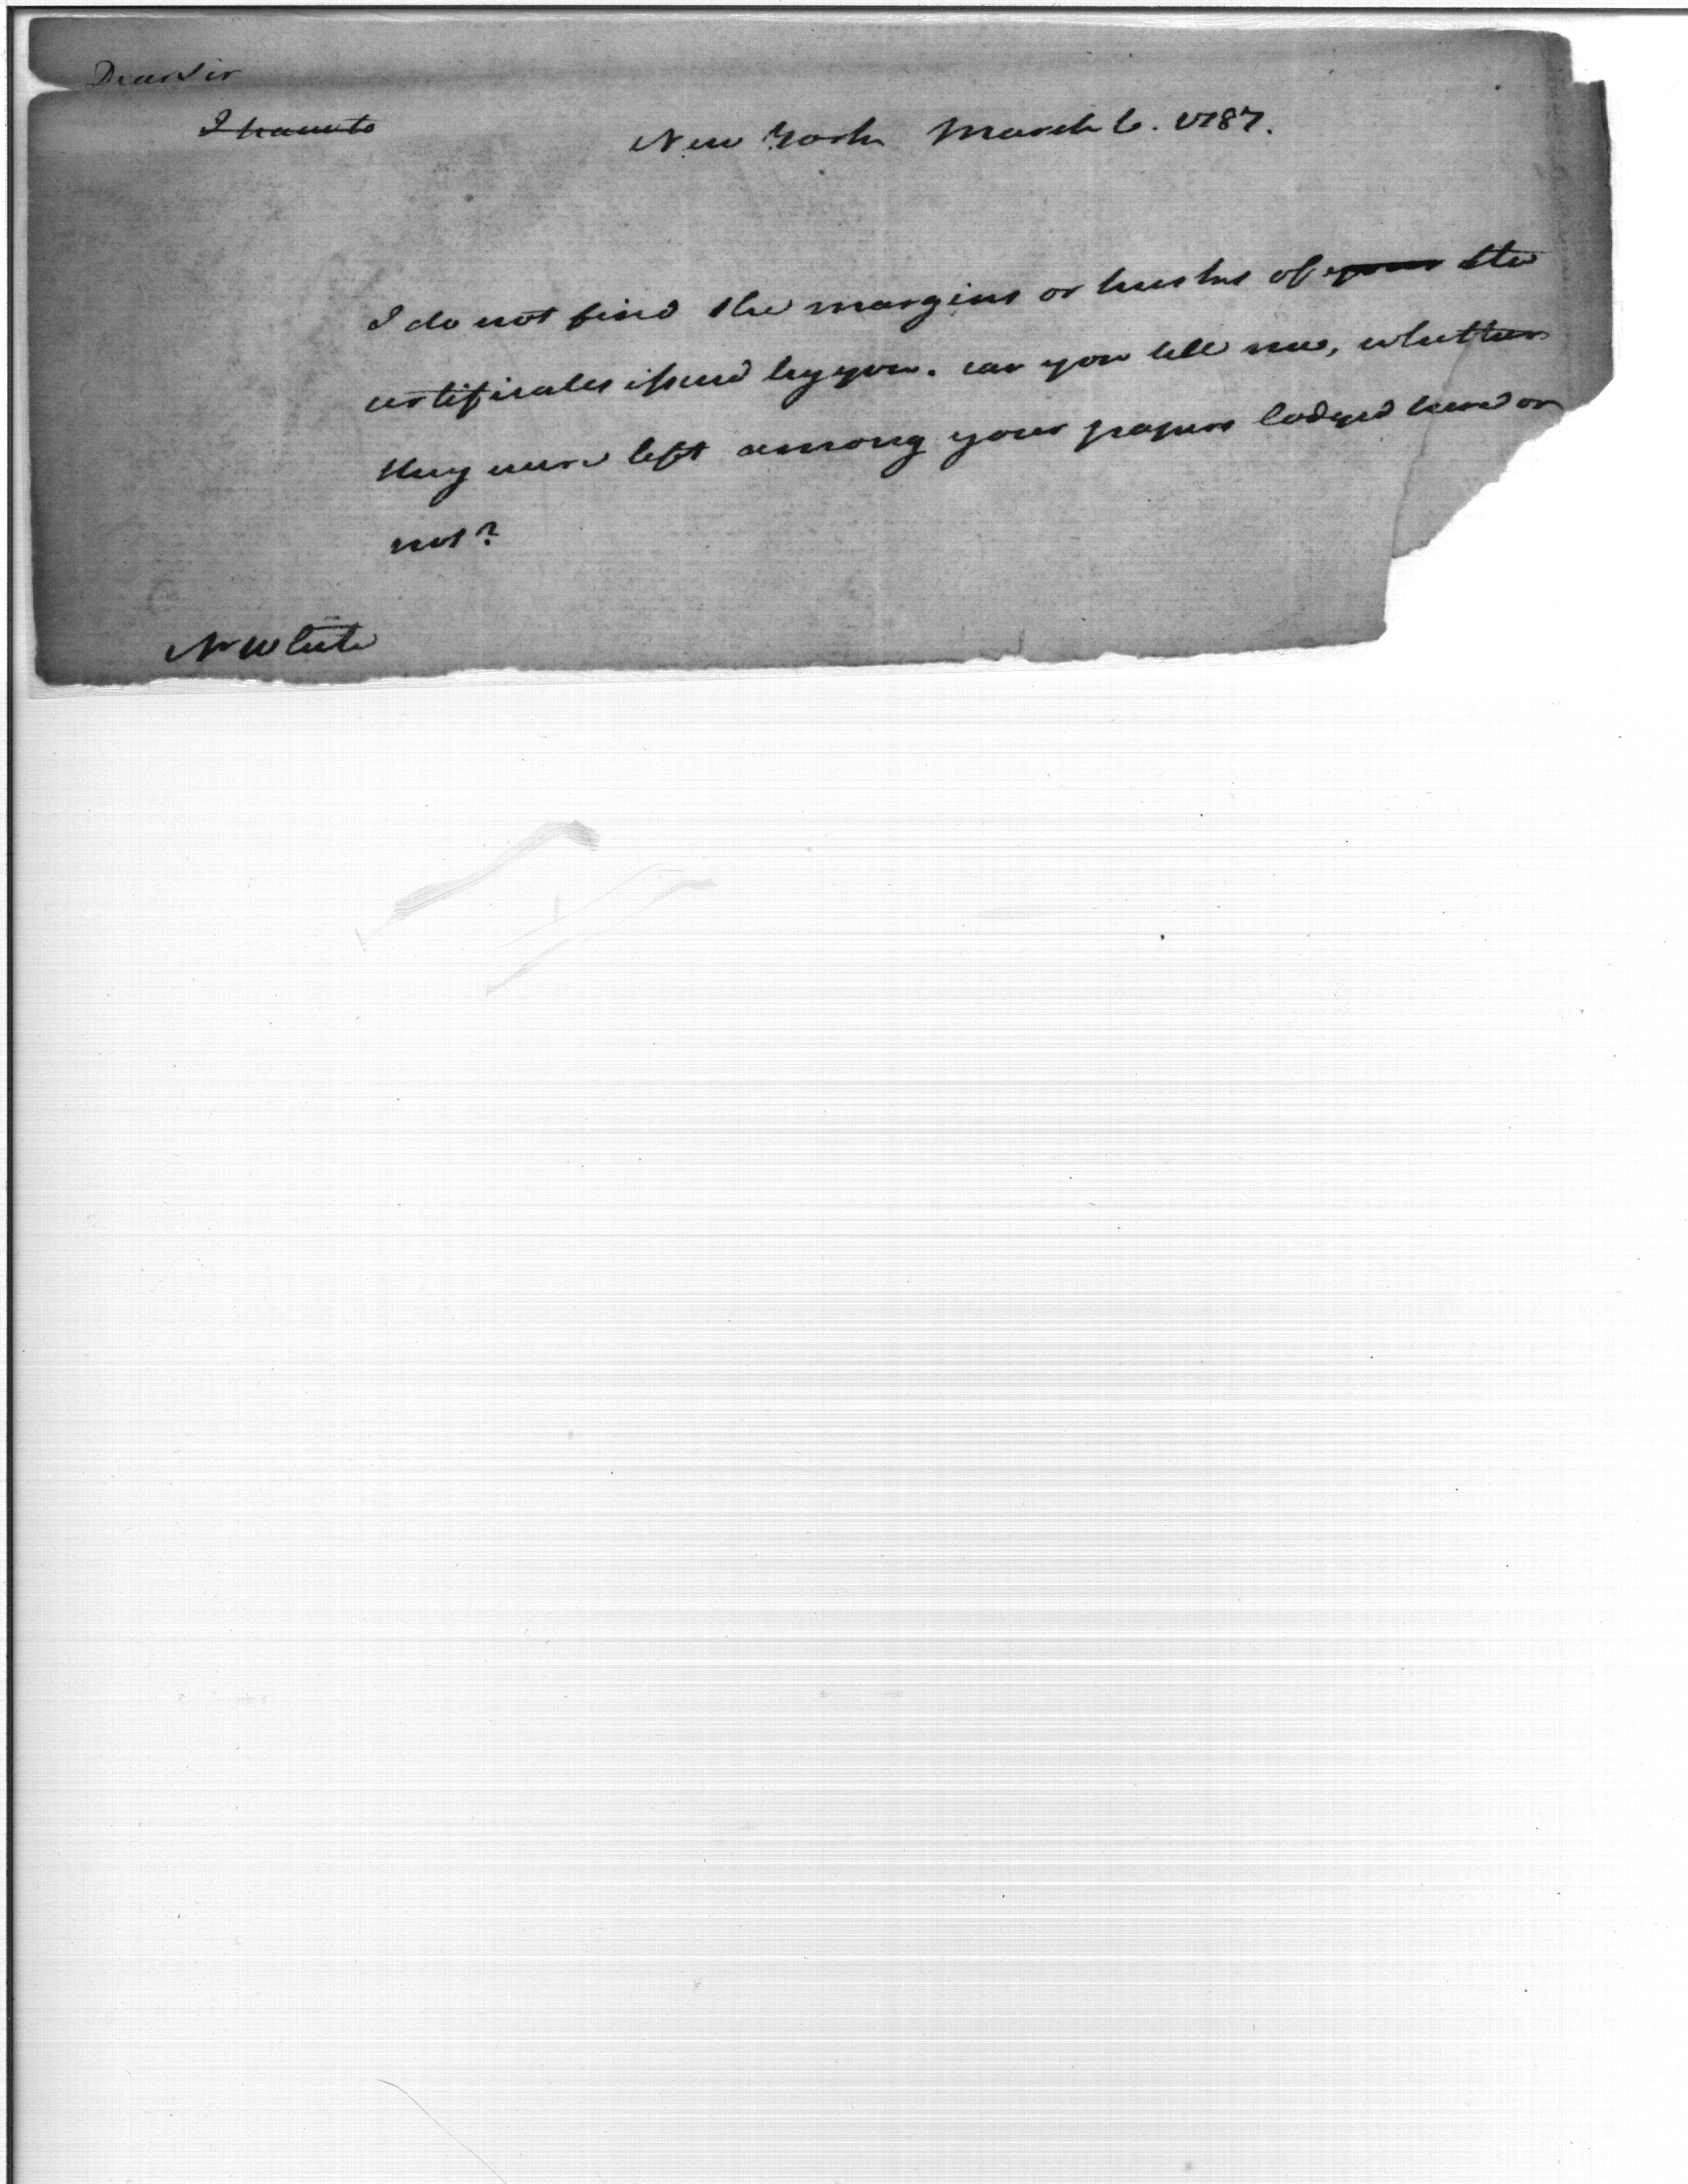 Dear Sir
I have to
New York March 6. 1787.
I do not find the margins or hushs of your the
certificates issued by you. can you tell me, whether
they were left among your papers lodged here or
not?
Mr White